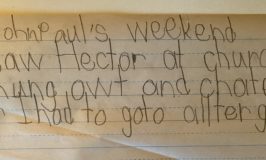 ohn paul's weekend
aw Hector at churc
hung awt and chate
I had to goto allter g